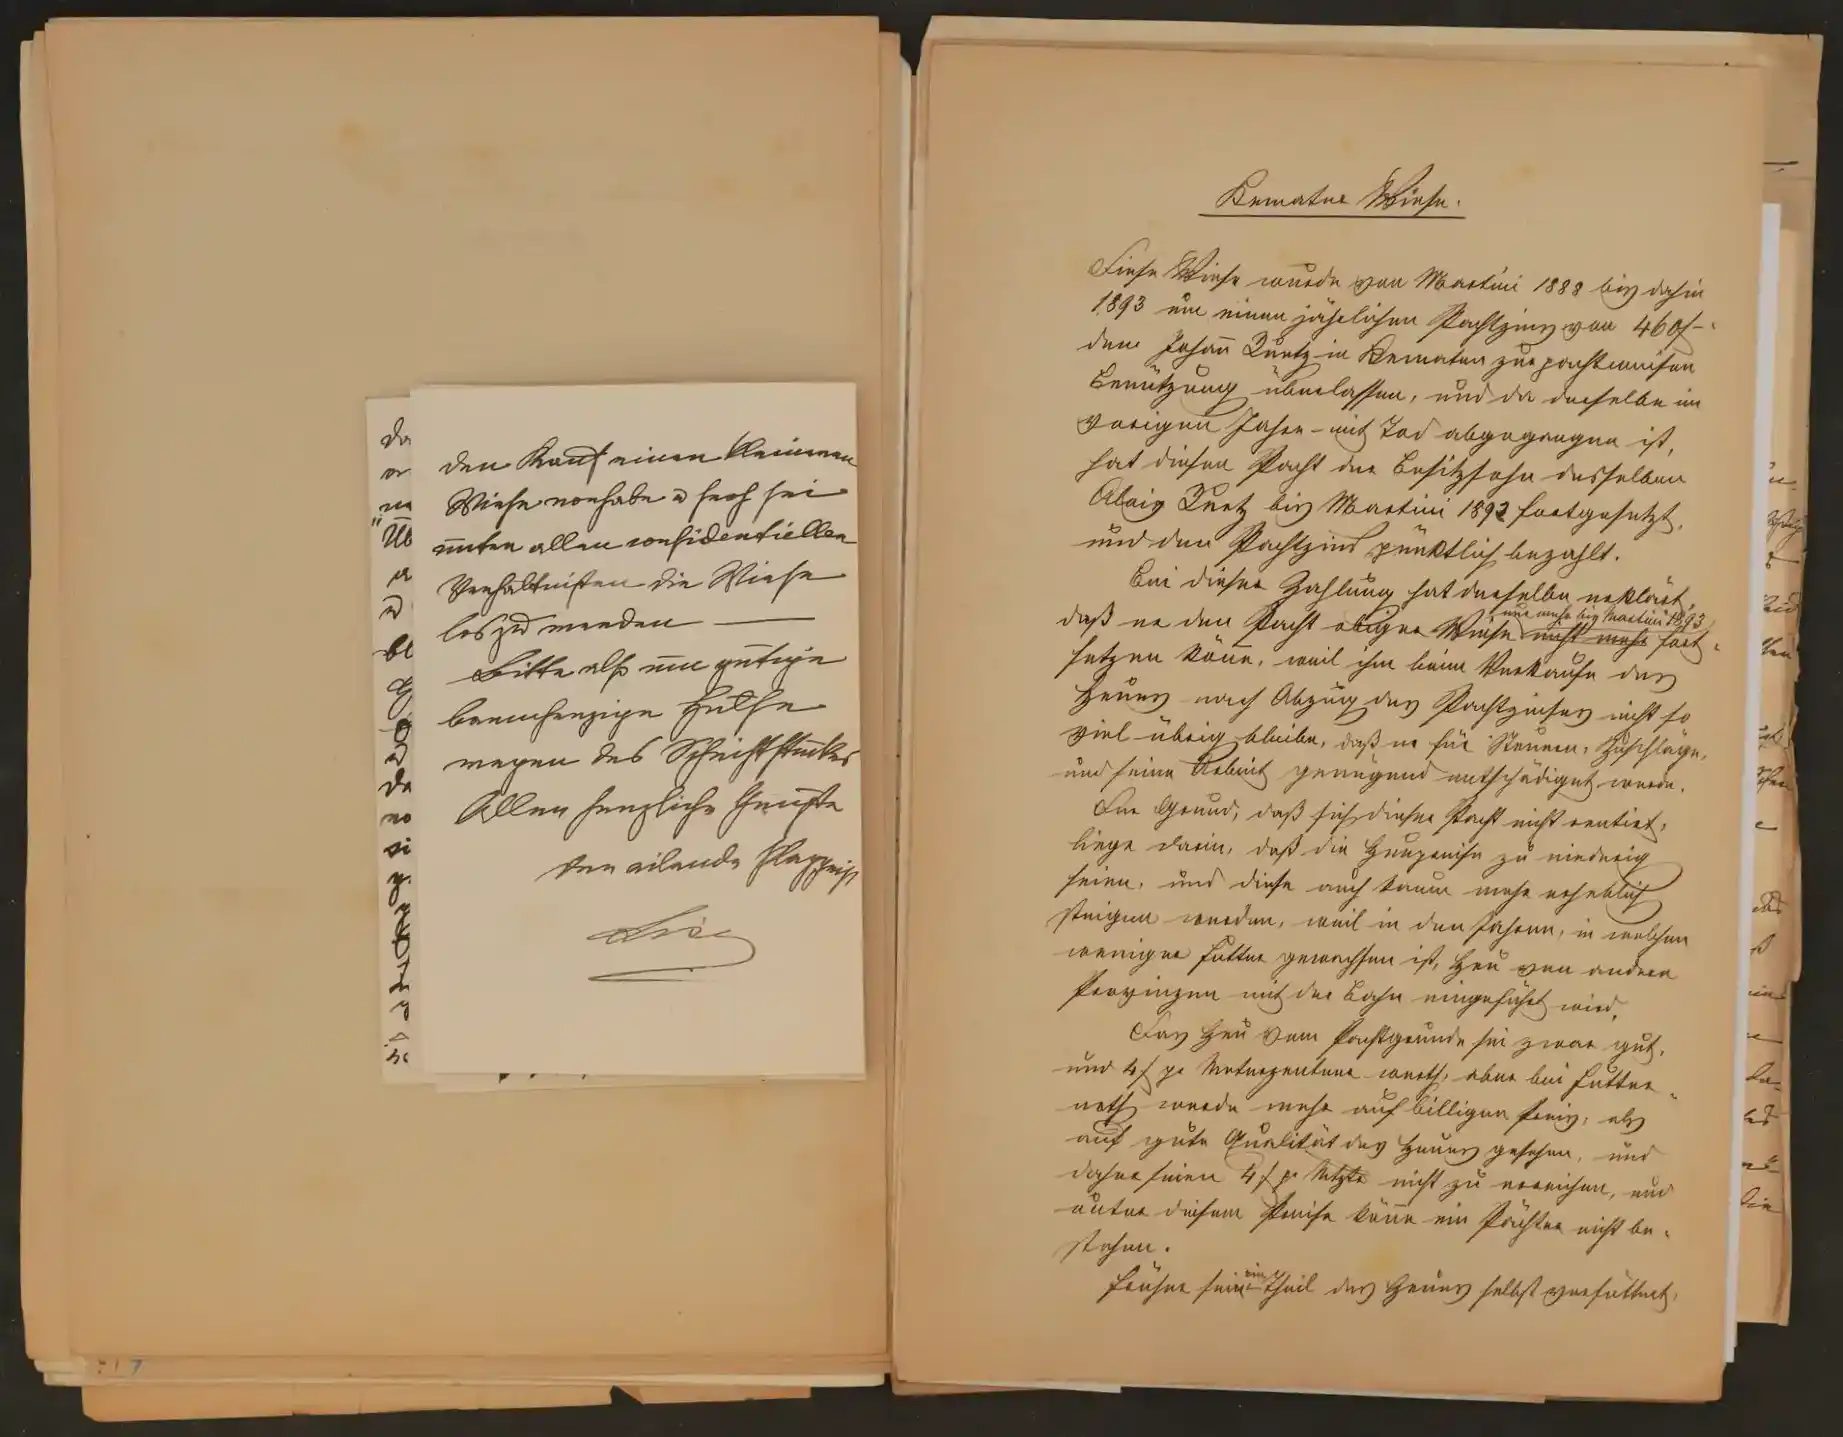 den Kauf einer kleineren
Wiese vorhabe u. froh sei
unter allen confidentiellen
Verhältnissen die Wiese
los zu werden —
Bitte also um gütige
barmherzige Hülfe
wegen des Schriftstückes
Allen herzliche Grüße
der eilende
Da
er
Üb
u
bl
da
no
si
Kemater Wiese.
Diese Wiese wurde von Martini 1888 bis dahin
1893 um einen jährlichen Pachtzins von 460 f –
dem Johann Kurtz in Kematen zur pachtweisen
Benützung überlassen, und da derselbe im
vorigen Jahre mit Tod abgegangen ist,
hat diesen Pacht der Besitzsohn desselben
Alois Kurtz bis Martini 1892 fortgesetzt,
und den Pachtzins pünktlich bezahlt.
Bei dieser Zahlung hat derselbe erklärt,
daß er den Pacht obiger Wiese nur mehr bis Martini 1893 nicht mehr fort-
setzen könne, weil ihm beim Verkaufe des
Heues nach Abzug des Pachtzinses nicht so
viel übrig bleibe, daß er für Steuern, Zuschläge,
und seine Arbeit genügend entschädiget werde.
Der Grund, daß sich dieser Pacht nicht rentirt,
liege darin, daß die Heupreise zu niederig
seien, und diese auch kaum mehr erheblich
steigen werden, weil in den Jahren, in welchen
weniger Futter gewachsen ist, Heu von andern
Provinzen mit der Bahn eingeführt wird.
Das Heu vom Pachtgrunde sei zwar gut,
und 4 f pr Meterzentner werth, aber bei Futter-
noth werde mehr auf billigen Preis, als
auf gute Qualität des Heues gesehen, und
daher seien 4 f pr Mtztr nicht zu erreichen, und
unter diesem Preise könne ein Pächter nicht be-
stehen.
Früher sei ein Theil des Heues selbst verfüttert,